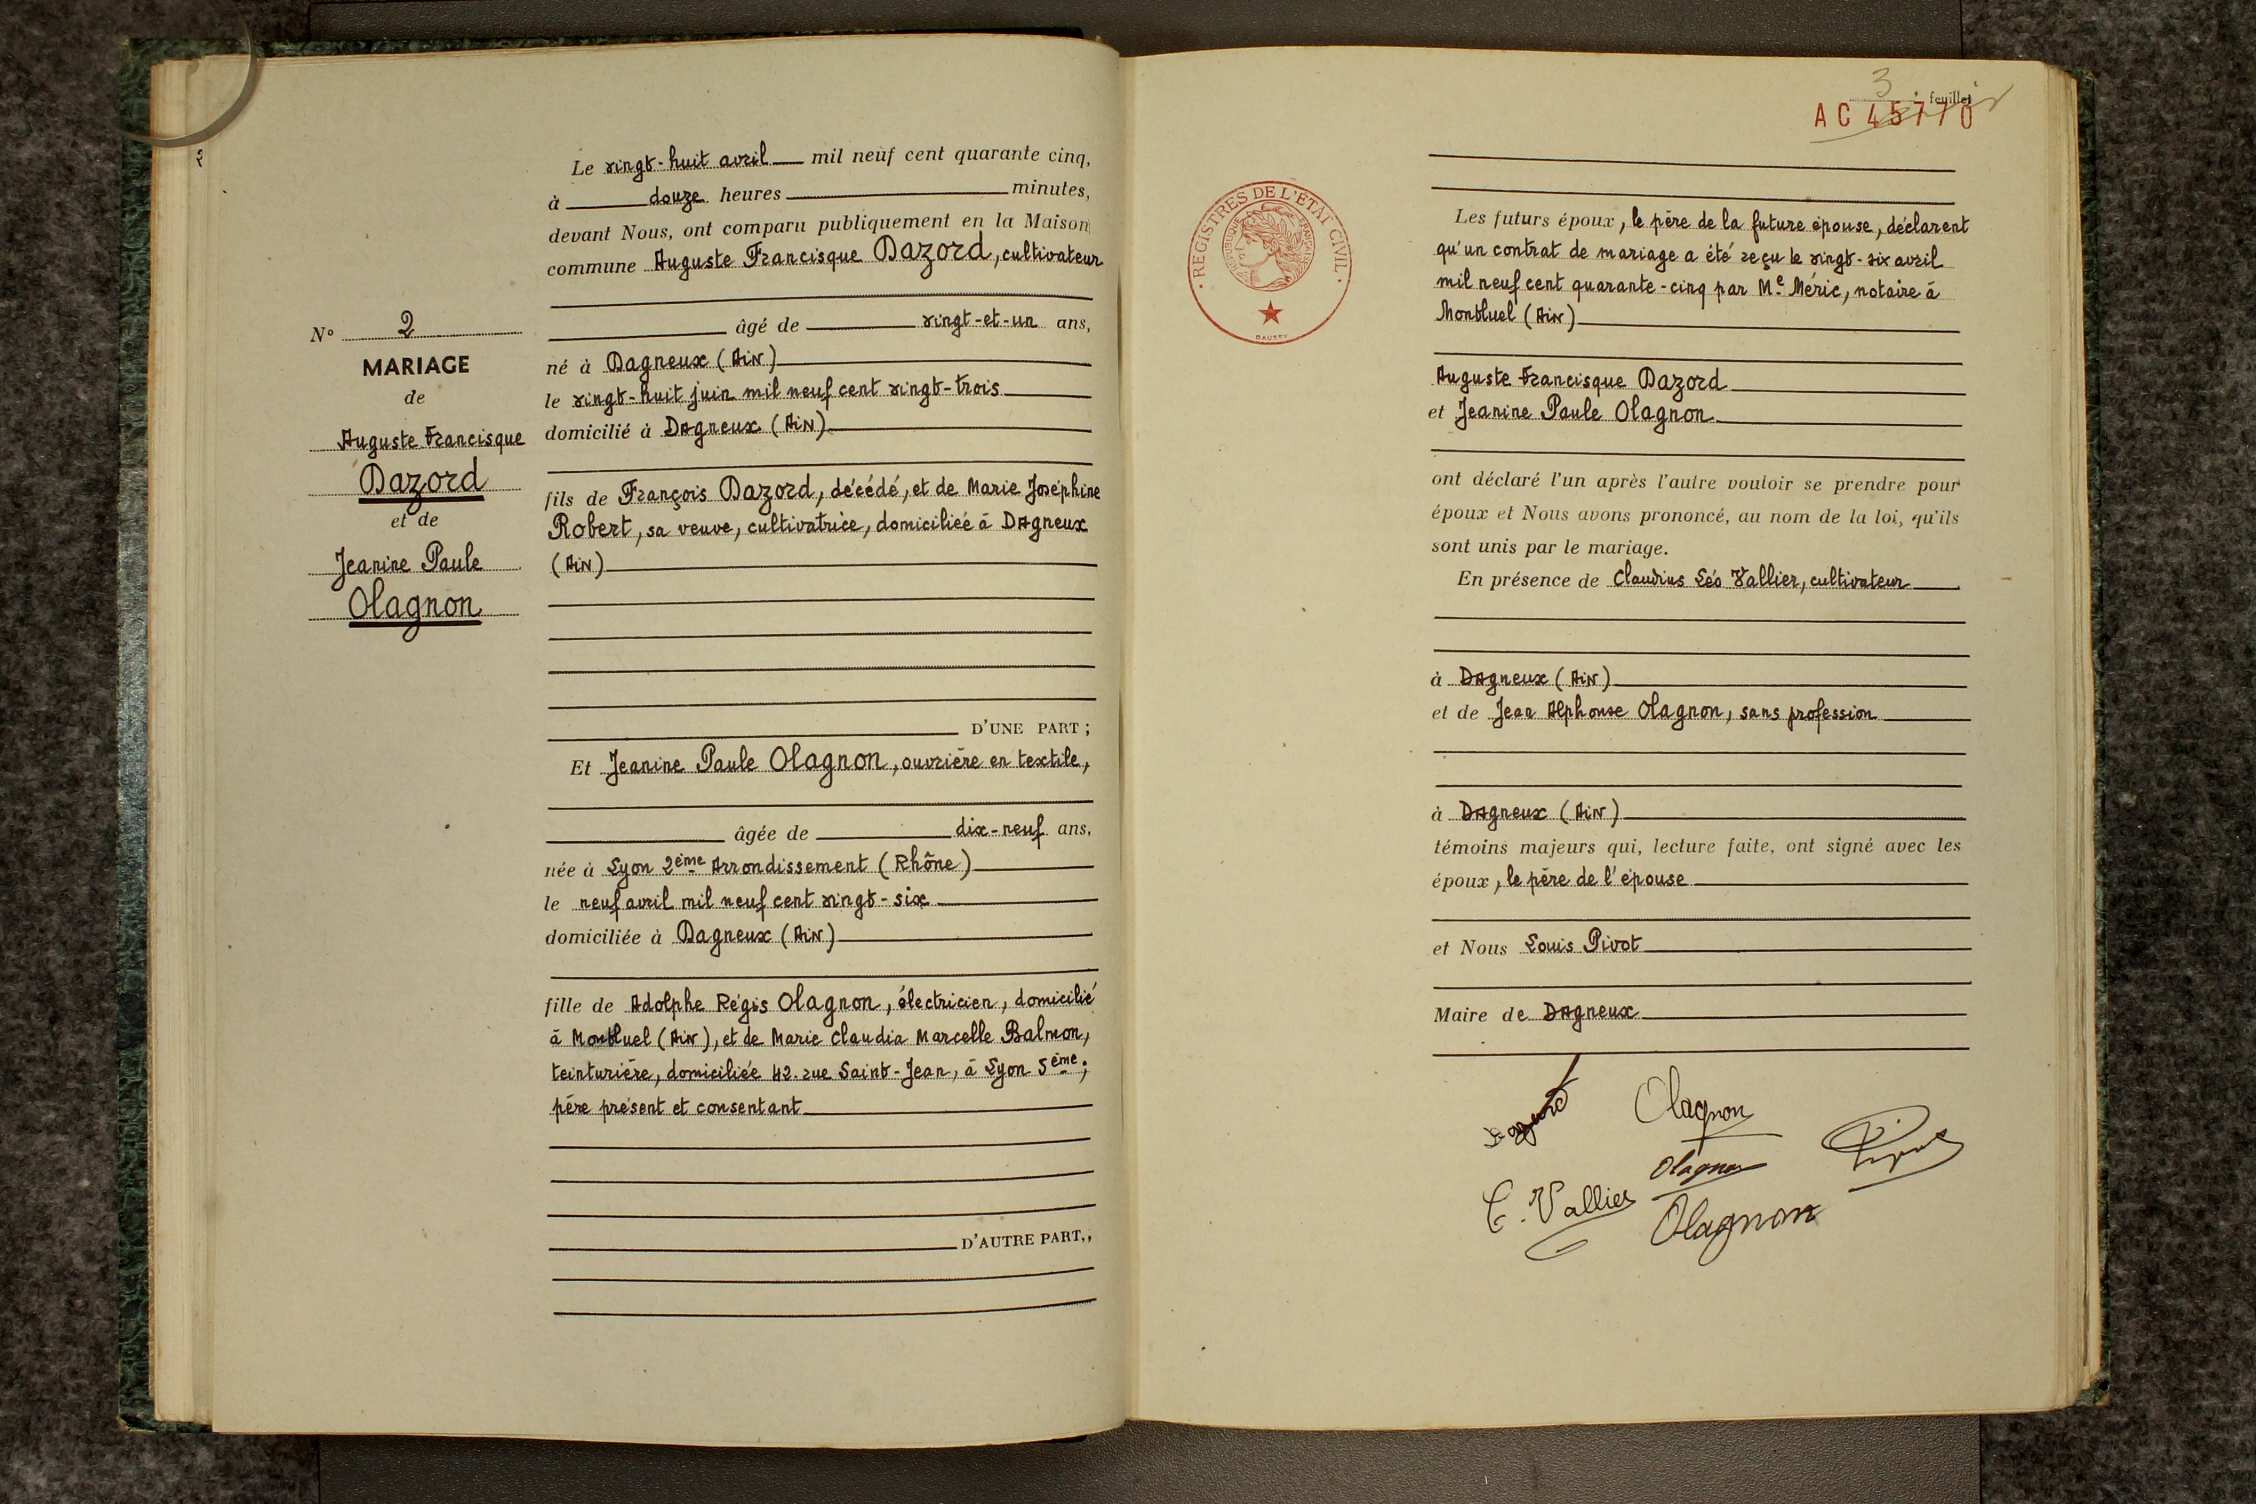 Le vingt-huit avril mil neuf cent quarante cinq,
à douze heures minutes,
devant Nous, ont comparu publiquement en la Maison
commune Auguste Francisque Dazord, cultivateur
âgé de vingt-et-un ans,
né à Dagneux (Ain)
le vingt-huit juin mil neuf cent vingt-trois
domicilié à Dagneux (Ain)
fils de François Dazord, décédé, et de Marie Joséphine
Robert, sa veuve, cultivatrice, domiciliée à Dagneux
(Ain)
D'UNE PART ;
Et Jeanine Paule Olagnon, ouvrière en textile,
âgée de dix-neuf ans,
née à Lyon 2ème Arrondissement (Rhône)
le neuf avril mil neuf cent vingt-six
domiciliée à Dagneux (Ain)
fille de Adolphe Régis Olagnon, électricien, domicilié
à Montluel (Ain), et de Marie Claudia Marcelle Balmon,
teinturière, domiciliée 42. rue Saint-Jean, à Lyon 5ème ;
père présent et consentant
D'AUTRE PART,,
N° 2
MARIAGE
de
Auguste Francisque
Dazord
et de
Jeanine Paule
Olagnon
3 e feuillet
AC 45770
REGISTRES DE L'ÉTAT CIVIL
RÉPUBLIQUE FRANÇAISE
Les futurs époux, le père de la future épouse, déclarent
qu'un contrat de mariage a été reçu le vingt-six avril
mil neuf cent quarante-cinq par Me Méric, notaire à
Montluel (Ain)
Auguste Francisque Dazord
et Jeanine Paule Olagnon
ont déclaré l'un après l'autre vouloir se prendre pour
époux et Nous avons prononcé, au nom de la loi, qu'ils
sont unis par le mariage.
En présence de Claudius Léo Vallier, cultivateur
à Dagneux (Ain)
et de Jean Alphonse Olagnon, sans profession
à Dagneux (Ain)
témoins majeurs qui, lecture faite, ont signé avec les
époux, le père de l'épouse
et Nous Louis Pivot
Maire de Dagneux
Olagnon
Olagnon
Pivot
C. Vallier
Olagnon